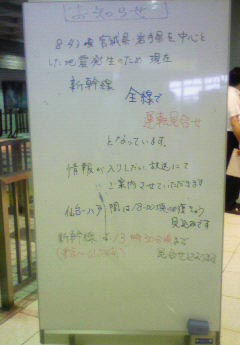 お知らせ
8:43頃 宮城県 岩手県を中心と
した地震発生のため 現在
新幹線
全線で
運転見合せ
となっています。
情報が入りしだい放送にて
ご案内させていただきます
仙台～八戸間は18:00頃
見込みです
新幹線は 13時30分頃まで
見合せ